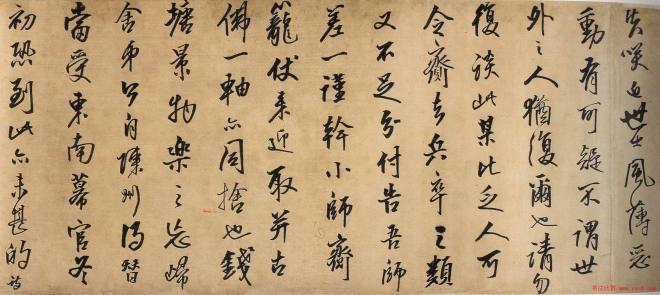 失咲也世士風薄惡
動有可疑不謂世
外之人猶復爾也請勿
復談此某比乏人可
令齎去兵卒之類
又不足分付告吾師
差一謹幹小師齎
籠仗來迎取并古
佛一軸亦同捨也錢
塘景物樂之忘歸
舍弟今自陳州得替
當受東南幕官冬
初恐到此亦未甚的詩